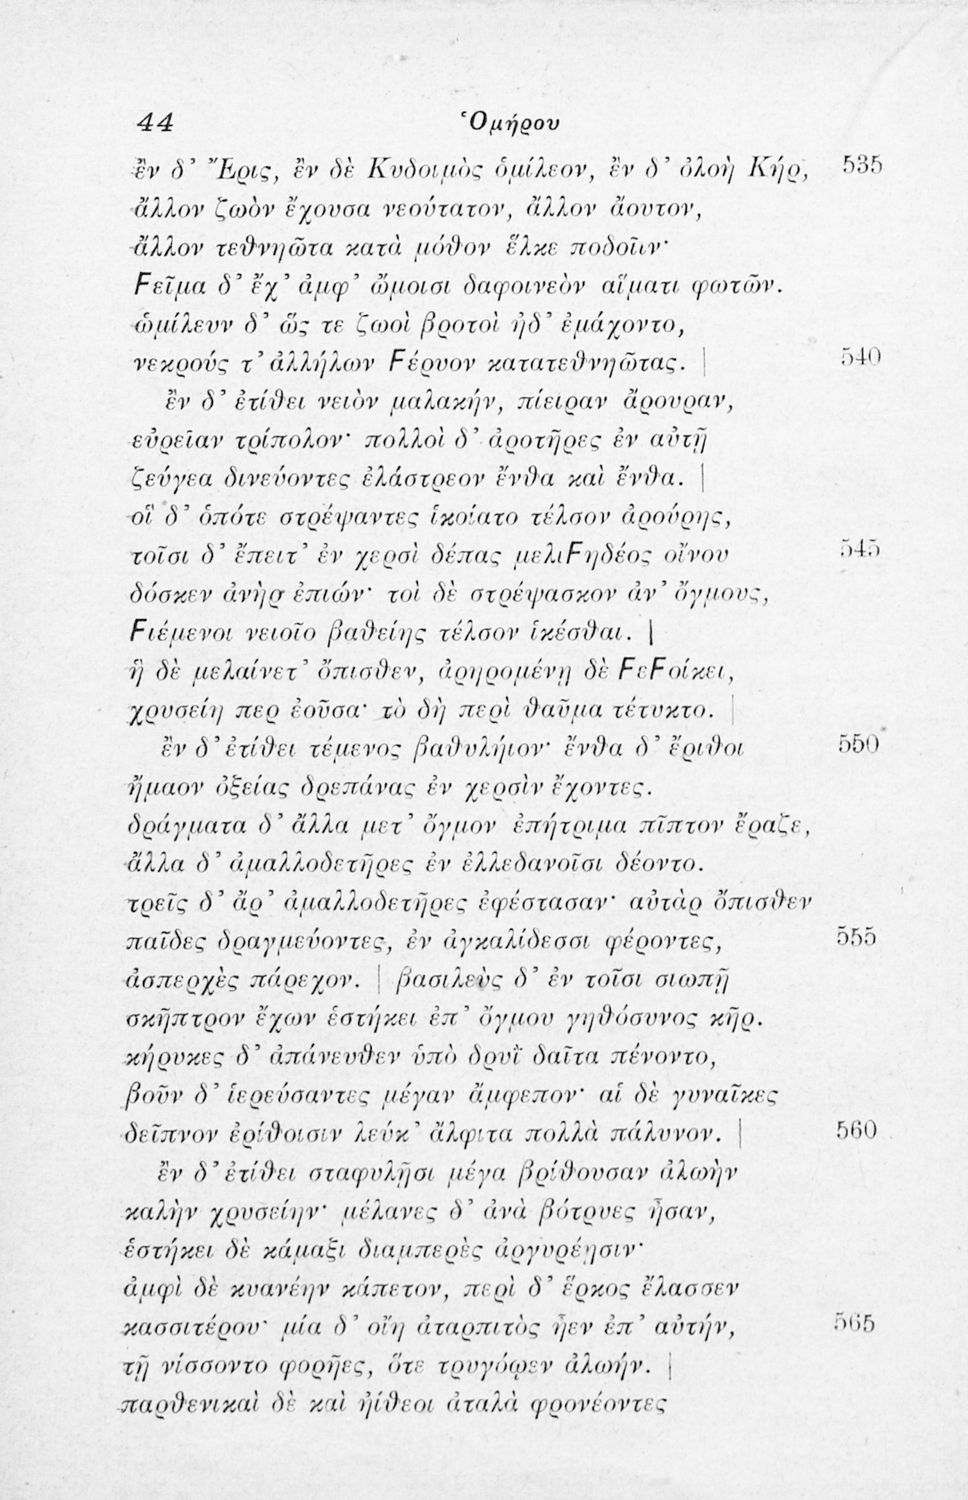 44 Ὁμήρου
ἐ̓ν δ᾽ Ἔρις, ἐ̓ν δὲ Κυδοιμὸς ὁμίλεον, ἐ̓ν δ᾽ ὀλοὴ Κήρ, 535
ἄλλον ζωὸν ἔχουσα νεούτατον, ἄλλον ἄουτον,
ἄλλον τεθνηῶτα κατὰ μόθον ἕλκε ποδοῖιν·
Ϝεῖμα δ᾽ ἔχ᾽ ἀμφ᾽ ὤμοισι δαφοινεὸν αἵματι φωτῶν.
ὡμίλευν δ᾽ ὥς τε ζωοὶ βροτοὶ ἠδ᾽ ἐμάχοντο,
νεκρούς τ᾽ ἀλλήλων Ϝέρυον κατατεθνηῶτας. | 540
ἐ̓ν δ᾽ ἐτίθει νειὸν μαλακήν, πίειραν ἄρουραν,
εὐρεῖαν τρίπολον· πολλοὶ δ᾽ ἀροτῆρες ἐν αὐτῇ
ζεύγεα δινεύοντες ἐλάστρεον ἔνθα καὶ ἔνθα. |
οἳ δ᾽ ὁπότε στρέψαντες ἱκοίατο τέλσον ἀρούρης,
τοῖσι δ᾽ ἔπειτ᾽ ἐν χερσὶ δέπας μελιϜηδέος οἴνου 545
δόσκεν ἀνὴρ ἐπιών· τοὶ δὲ στρέψασκον ἀν᾽ ὄγμους,
Ϝιέμενοι νειοῖο βαθείης τέλσον ἱκέσθαι. |
ἣ δὲ μελαίνετ᾽ ὄπισθεν, ἀρηρομένῃ δὲ ϜεϜοίκει,
χρυσείη περ ἐοῦσα· τὸ δὴ περὶ θαῦμα τέτυκτο. |
ἐ̓ν δ᾽ ἐτίθει τέμενος βαθυλήιον· ἔνθα δ᾽ ἔριθοι 550
ἤμαον ὀξείας δρεπάνας ἐν χερσὶν ἔχοντες.
δράγματα δ᾽ ἄλλα μετ᾽ ὄγμον ἐπήτριμα πῖπτον ἔραζε,
ἄλλα δ᾽ ἀμαλλοδετῆρες ἐν ἐλλεδανοῖσι δέοντο.
τρεῖς δ᾽ ἄρ᾽ ἀμαλλοδετῆρες ἐφέστασαν· αὐτὰρ ὄπισθεν
παῖδες δραγμεύοντες, ἐν ἀγκαλίδεσσι φέροντες, 555
ἀσπερχὲς πάρεχον. | βασιλεὺς δ᾽ ἐν τοῖσι σιωπῇ
σκῆπτρον ἔχων ἑστήκει ἐπ᾽ ὄγμου γηθόσυνος κῆρ.
κήρυκες δ᾽ ἀπάνευθεν ὑπὸ δρυῒ δαῖτα πένοντο,
βοῦν δ᾽ ἱερεύσαντες μέγαν ἄμφεπον· αἱ δὲ γυναῖκες
δεῖπνον ἐρίθοισιν λεύκ᾽ ἄλφιτα πολλὰ πάλυνον. | 560
ἐ̓ν δ᾽ ἐτίθει σταφυλῇσι μέγα βρίθουσαν ἀλωὴν
καλὴν χρυσείην· μέλανες δ᾽ ἀνὰ βότρυες ἦσαν,
ἑστήκει δὲ κάμαξι διαμπερὲς ἀργυρέῃσιν·
ἀμφὶ δὲ κυανέην κάπετον, περὶ δ᾽ ἕρκος ἔλασσεν
κασσιτέρου· μία δ᾽ οἴη ἀταρπιτὸς ἦεν ἐπ᾽ αὐτήν, 565
τῇ νίσσοντο φορῆες, ὅτε τρυγόῳεν ἀλωήν. |
παρθενικαὶ δὲ καὶ ἠίθεοι ἀταλὰ φρονέοντες